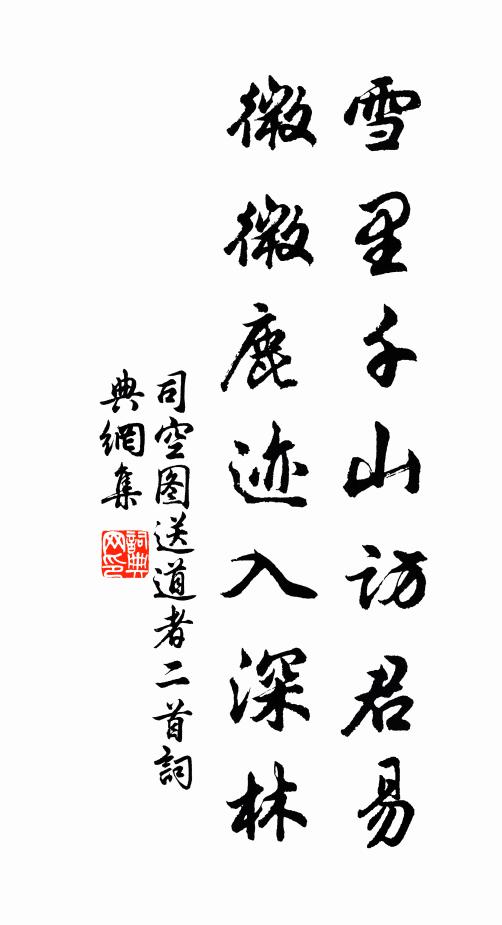 雪里千山访君易
微微鹿迹入深林
司空图送道者二首詞
典網集
詞典
网印